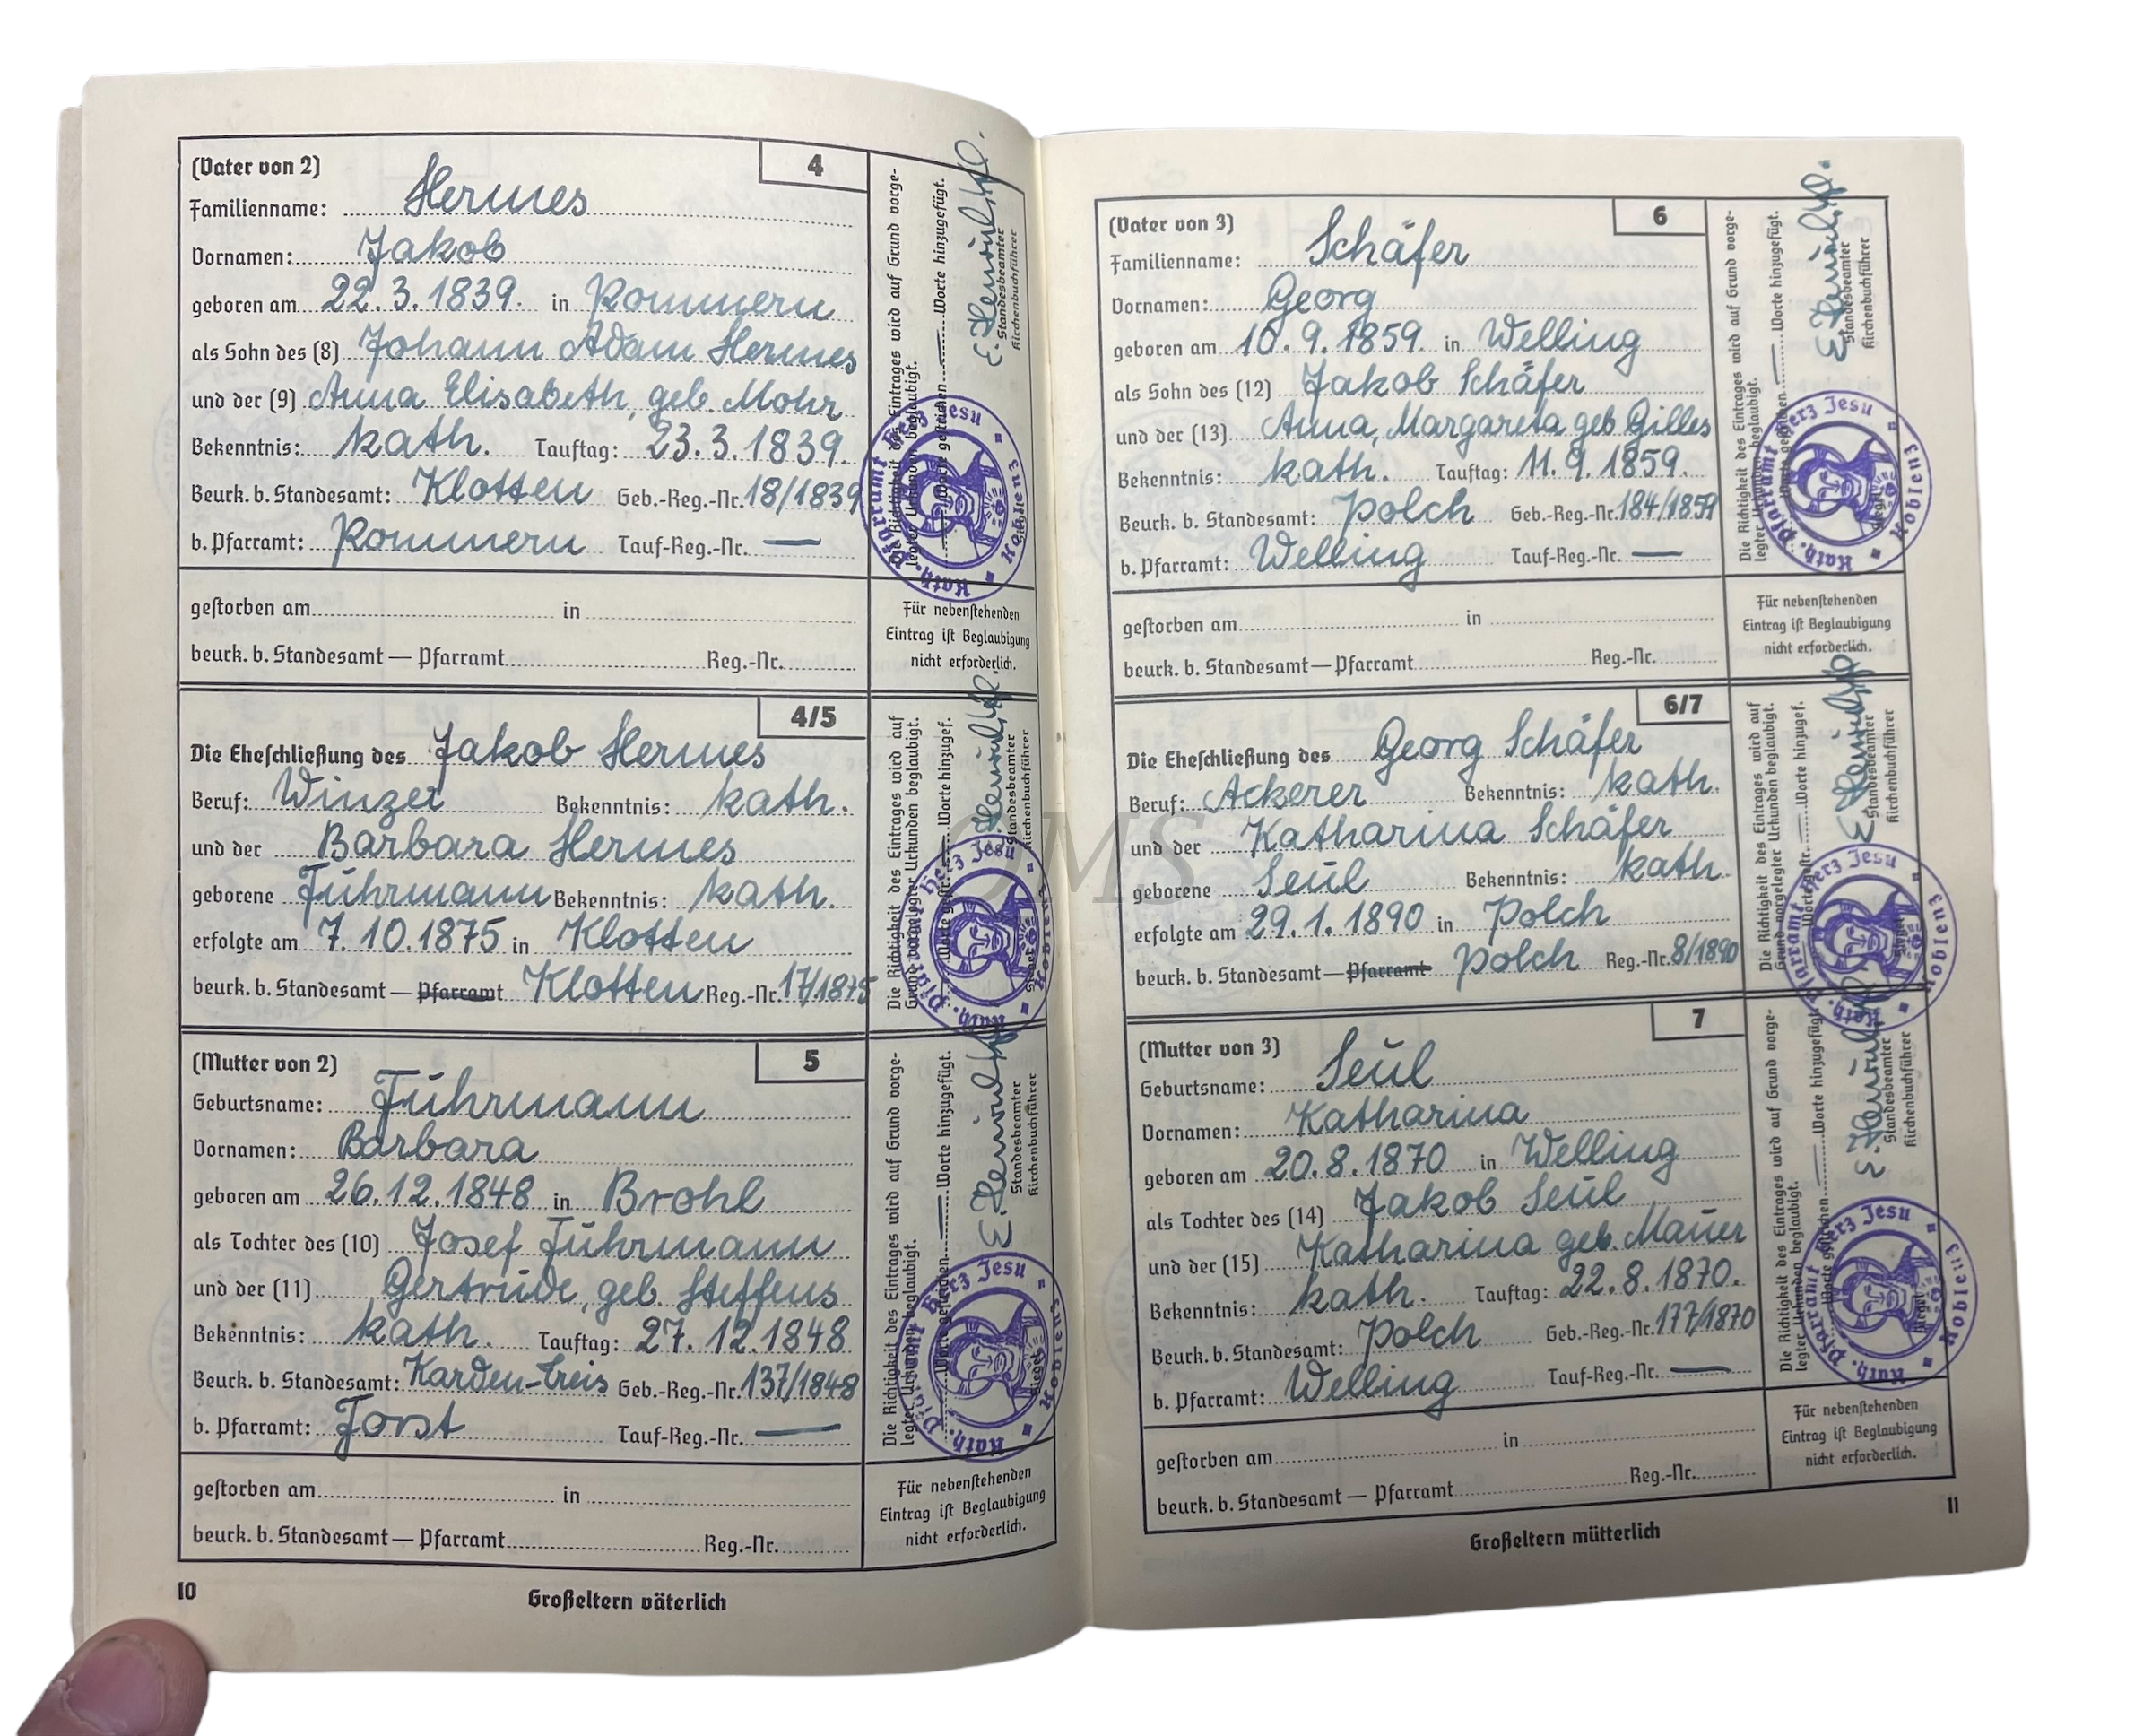 (Vater von 2) 4
Familienname: Hermes
Vornamen: Jakob
geboren am 22.3.1839. in Pommern
als Sohn des (8) Johann Adam Hermes
und der (9) Anna Elisabeth, geb. Mohr
Bekenntnis: kath. Tauftag: 23.3.1839.
Beurk. b. Standesamt: Klotten Geb.-Reg.-Nr. 18/1839
b. Pfarramt: Pommern Tauf-Reg.-Nr. —
gestorben am in
beurk. b. Standesamt — Pfarramt Reg.-Nr.
Die Richtigkeit des Eintrages wird auf Grund vorge-
legter Urkunden beglaubigt.
Worte gestrichen — Worte hinzugefügt.
Standesbeamter
Kirchenbuchführer
Kath. Pfarramt Herz Jesu Koblenz
Für nebenstehenden
Eintrag ist Beglaubigung
nicht erforderlich.
4/5
Die Eheschließung des Jakob Hermes
Beruf: Winzer Bekenntnis: kath.
und der Barbara Hermes
geborene Fuhrmann Bekenntnis: kath.
erfolgte am 7.10.1875 in Klotten
beurk. b. Standesamt — Pfarramt Klotten Reg.-Nr. 17/1875
Die Richtigkeit des Eintrages wird auf
Grund vorgelegter Urkunden beglaubigt.
Worte gestr. — Worte hinzugef.
Standesbeamter
Kirchenbuchführer
Siegel
Kath. Pfarramt Herz Jesu Koblenz
(Mutter von 2) 5
Geburtsname: Fuhrmann
Vornamen: Barbara
geboren am 26.12.1848 in Brohl
als Tochter des (10) Josef Fuhrmann
und der (11) Gertrude, geb. Steffens
Bekenntnis: kath. Tauftag: 27.12.1848
Beurk. b. Standesamt: Karden-Treis Geb.-Reg.-Nr. 137/1848
b. Pfarramt: Forst Tauf-Reg.-Nr. —
gestorben am in
beurk. b. Standesamt — Pfarramt Reg.-Nr.
Die Richtigkeit des Eintrages wird auf Grund vorge-
legter Urkunden beglaubigt.
Worte gestrichen — Worte hinzugefügt.
Standesbeamter
Kirchenbuchführer
Siegel
Kath. Pfarramt Herz Jesu Koblenz
Für nebenstehenden
Eintrag ist Beglaubigung
nicht erforderlich.
10 Großeltern väterlich
(Vater von 3) 6
Familienname: Schäfer
Vornamen: Georg
geboren am 10.9.1859. in Welling
als Sohn des (12) Jakob Schäfer
und der (13) Anna, Margareta geb Gilles
Bekenntnis: kath. Tauftag: 11.9.1859.
Beurk. b. Standesamt: Polch Geb.-Reg.-Nr. 184/1859
b. Pfarramt: Welling Tauf-Reg.-Nr. —
gestorben am in
beurk. b. Standesamt — Pfarramt Reg.-Nr.
Die Richtigkeit des Eintrages wird auf Grund vorge-
legter Urkunden beglaubigt.
Worte gestrichen — Worte hinzugefügt.
Standesbeamter
Kirchenbuchführer
Siegel
Kath. Pfarramt Herz Jesu Koblenz
Für nebenstehenden
Eintrag ist Beglaubigung
nicht erforderlich.
6/7
Die Eheschließung des Georg Schäfer
Beruf: Ackerer Bekenntnis: kath.
und der Katharina Schäfer
geborene Seul Bekenntnis: kath.
erfolgte am 29.1.1890 in Polch
beurk. b. Standesamt — Pfarramt Polch Reg.-Nr. 8/1890
Die Richtigkeit des Eintrages wird auf
Grund vorgelegter Urkunden beglaubigt.
Worte gestr. — Worte hinzugef.
Standesbeamter
Kirchenbuchführer
Siegel
Kath. Pfarramt Herz Jesu Koblenz
(Mutter von 3) 7
Geburtsname: Seul
Vornamen: Katharina
geboren am 20.8.1870 in Welling
als Tochter des (14) Jakob Seul
und der (15) Katharina geb. Mauer
Bekenntnis: kath. Tauftag: 22.8.1870.
Beurk. b. Standesamt: Polch Geb.-Reg.-Nr. 177/1870
b. Pfarramt: Welling Tauf-Reg.-Nr. —
gestorben am in
beurk. b. Standesamt — Pfarramt Reg.-Nr.
Die Richtigkeit des Eintrages wird auf Grund vorge-
legter Urkunden beglaubigt.
Worte gestrichen — Worte hinzugefügt
Standesbeamter
Kirchenbuchführer
Siegel
Kath. Pfarramt Herz Jesu Koblenz
Für nebenstehenden
Eintrag ist Beglaubigung
nicht erforderlich.
Großeltern mütterlich 11